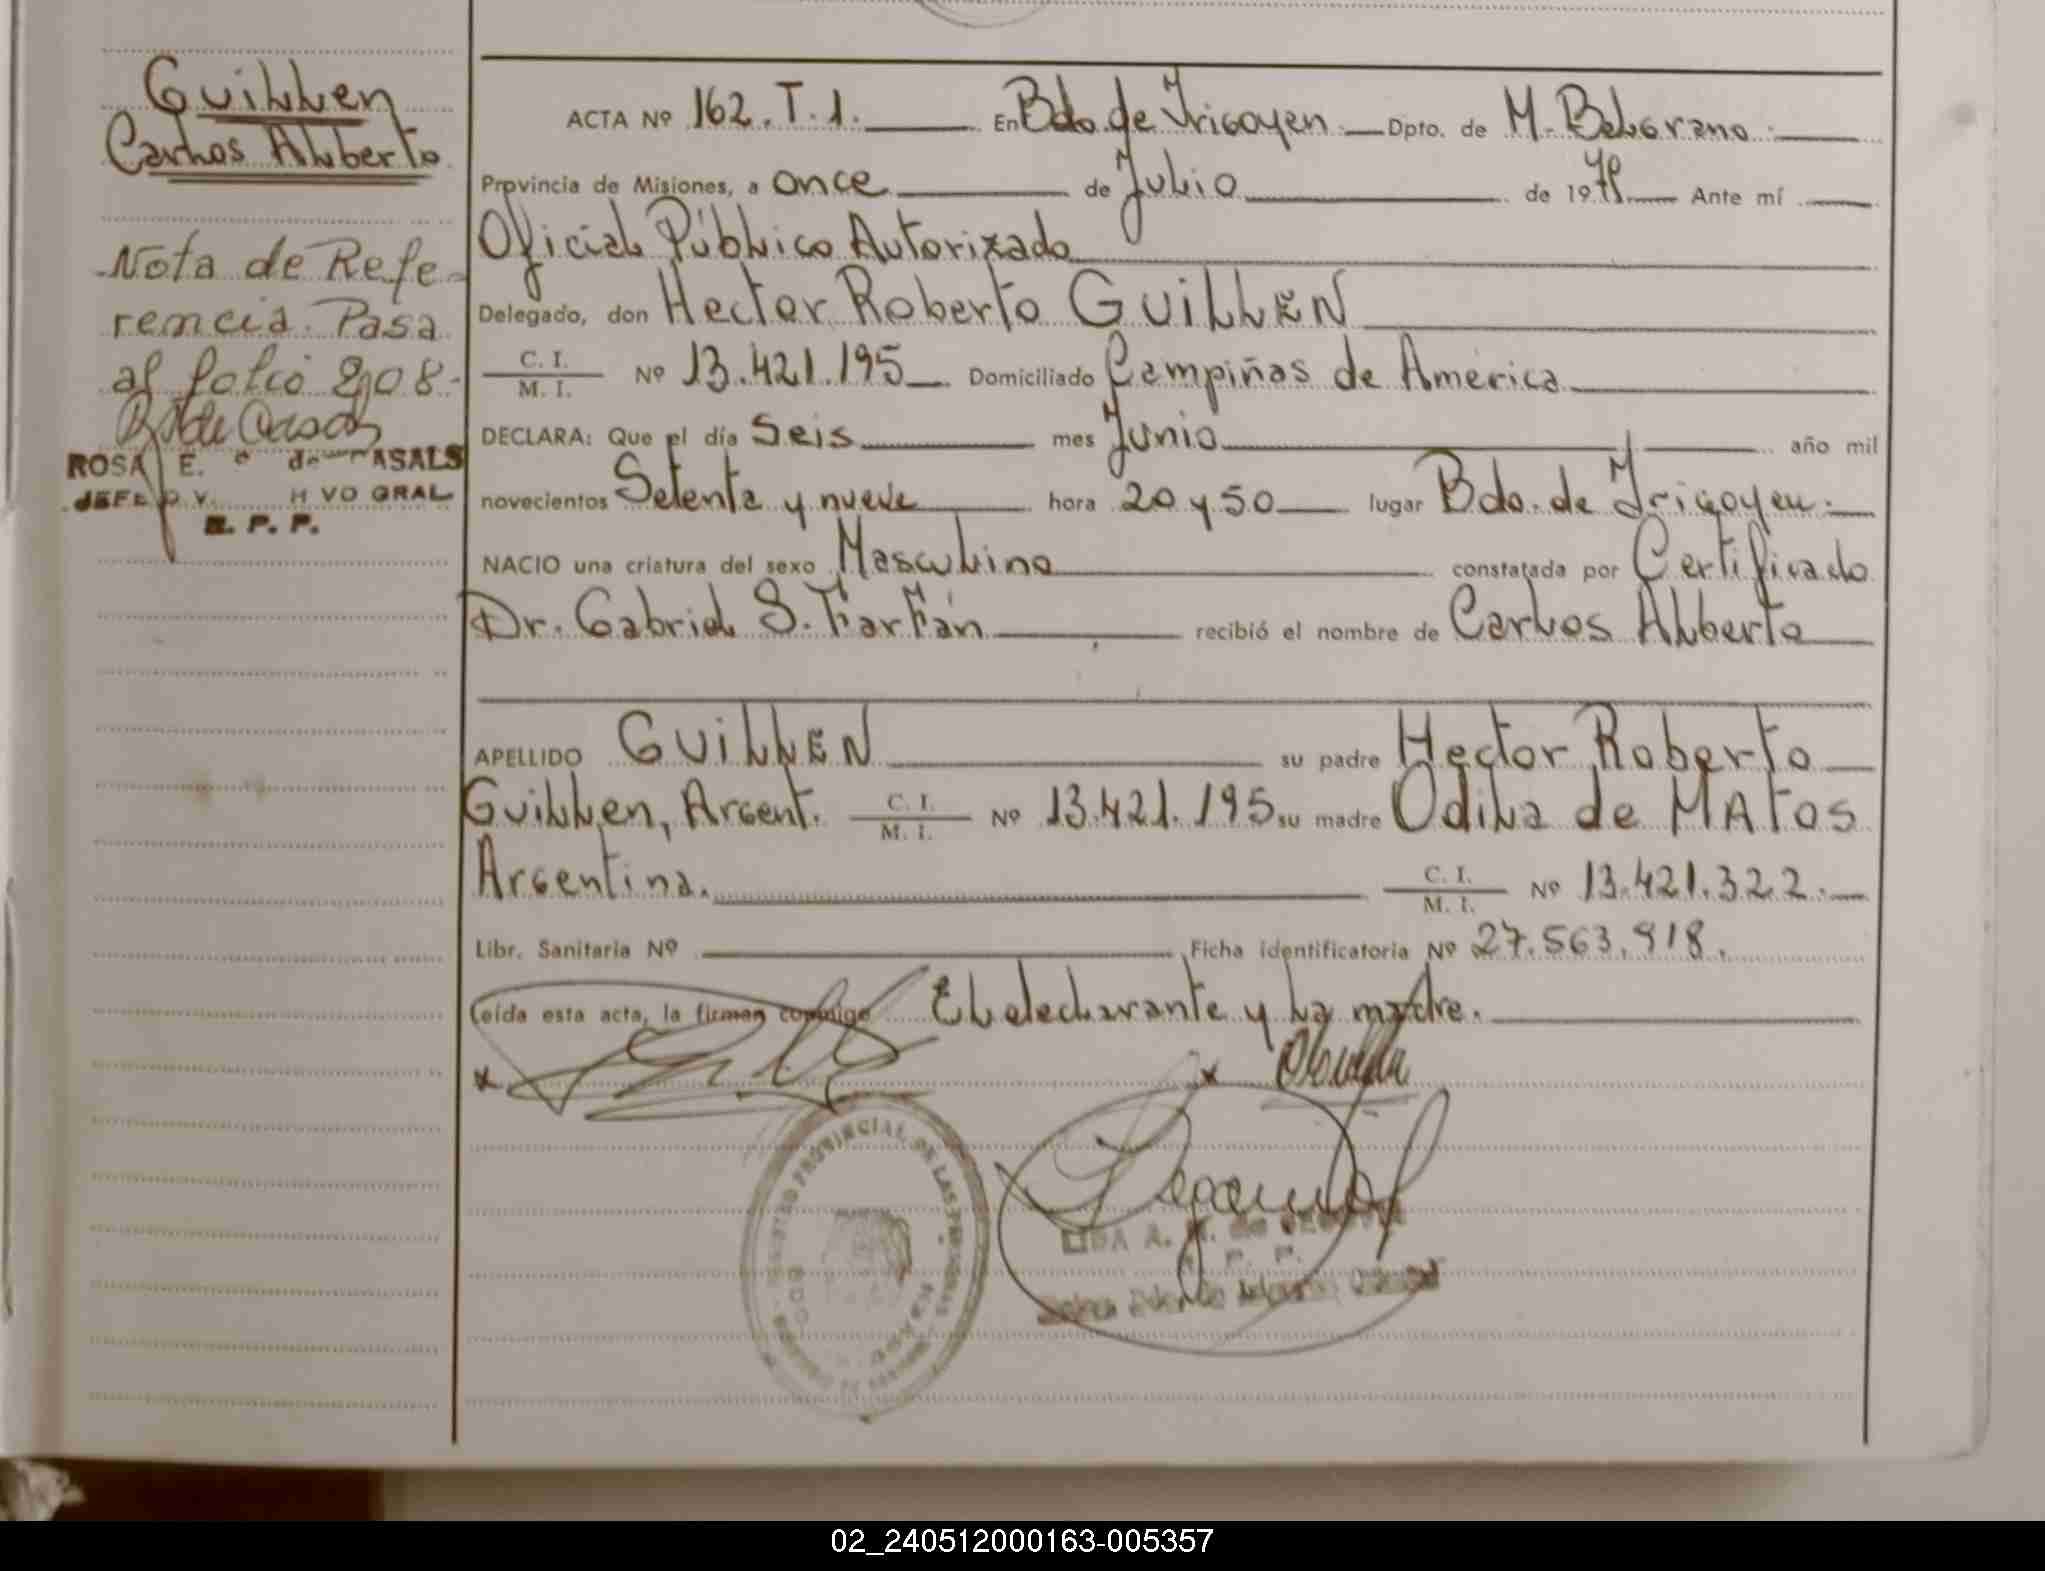 Guillen
Carlos Alberto
Nota de Refe-
rencia. Pasa
al folio 208.-
ROSA E. de CASALS
JEFE
R. P. P.
ACTA Nº 162. T. 1. En Bdo. de Irigoyen. Dpto. de M. Belgrano.
Provincia de Misiones, a once de Julio de 1979 Ante mí
Oficial Público Autorizado
Delegado, don Hector Roberto GUILLEN
C. I. / M. I. Nº 13.421.195 Domiciliado Campiñas de América
DECLARA: Que el día Seis mes Junio año mil
novecientos Setenta y nueve hora 20 y 50 lugar Bdo. de Irigoyen.
NACIO una criatura del sexo Masculino constatada por Certificado
Dr. Gabriel S. Farfán recibió el nombre de Carlos Alberto
APELLIDO GUILLEN su padre Hector Roberto
Guillen, Argent. C. I. / M. I. Nº 13.421.195 su madre Odila de MATOS
Argentina. C. I. / M. I. Nº 13.421.322.
Libr. Sanitaria Nº Ficha identificatoria Nº 27.563.918.
Leída esta acta, la firman conmigo El declarante y la madre.
x x
REGISTRO PROVINCIAL DE LAS PERSONAS
02_240512000163-005357